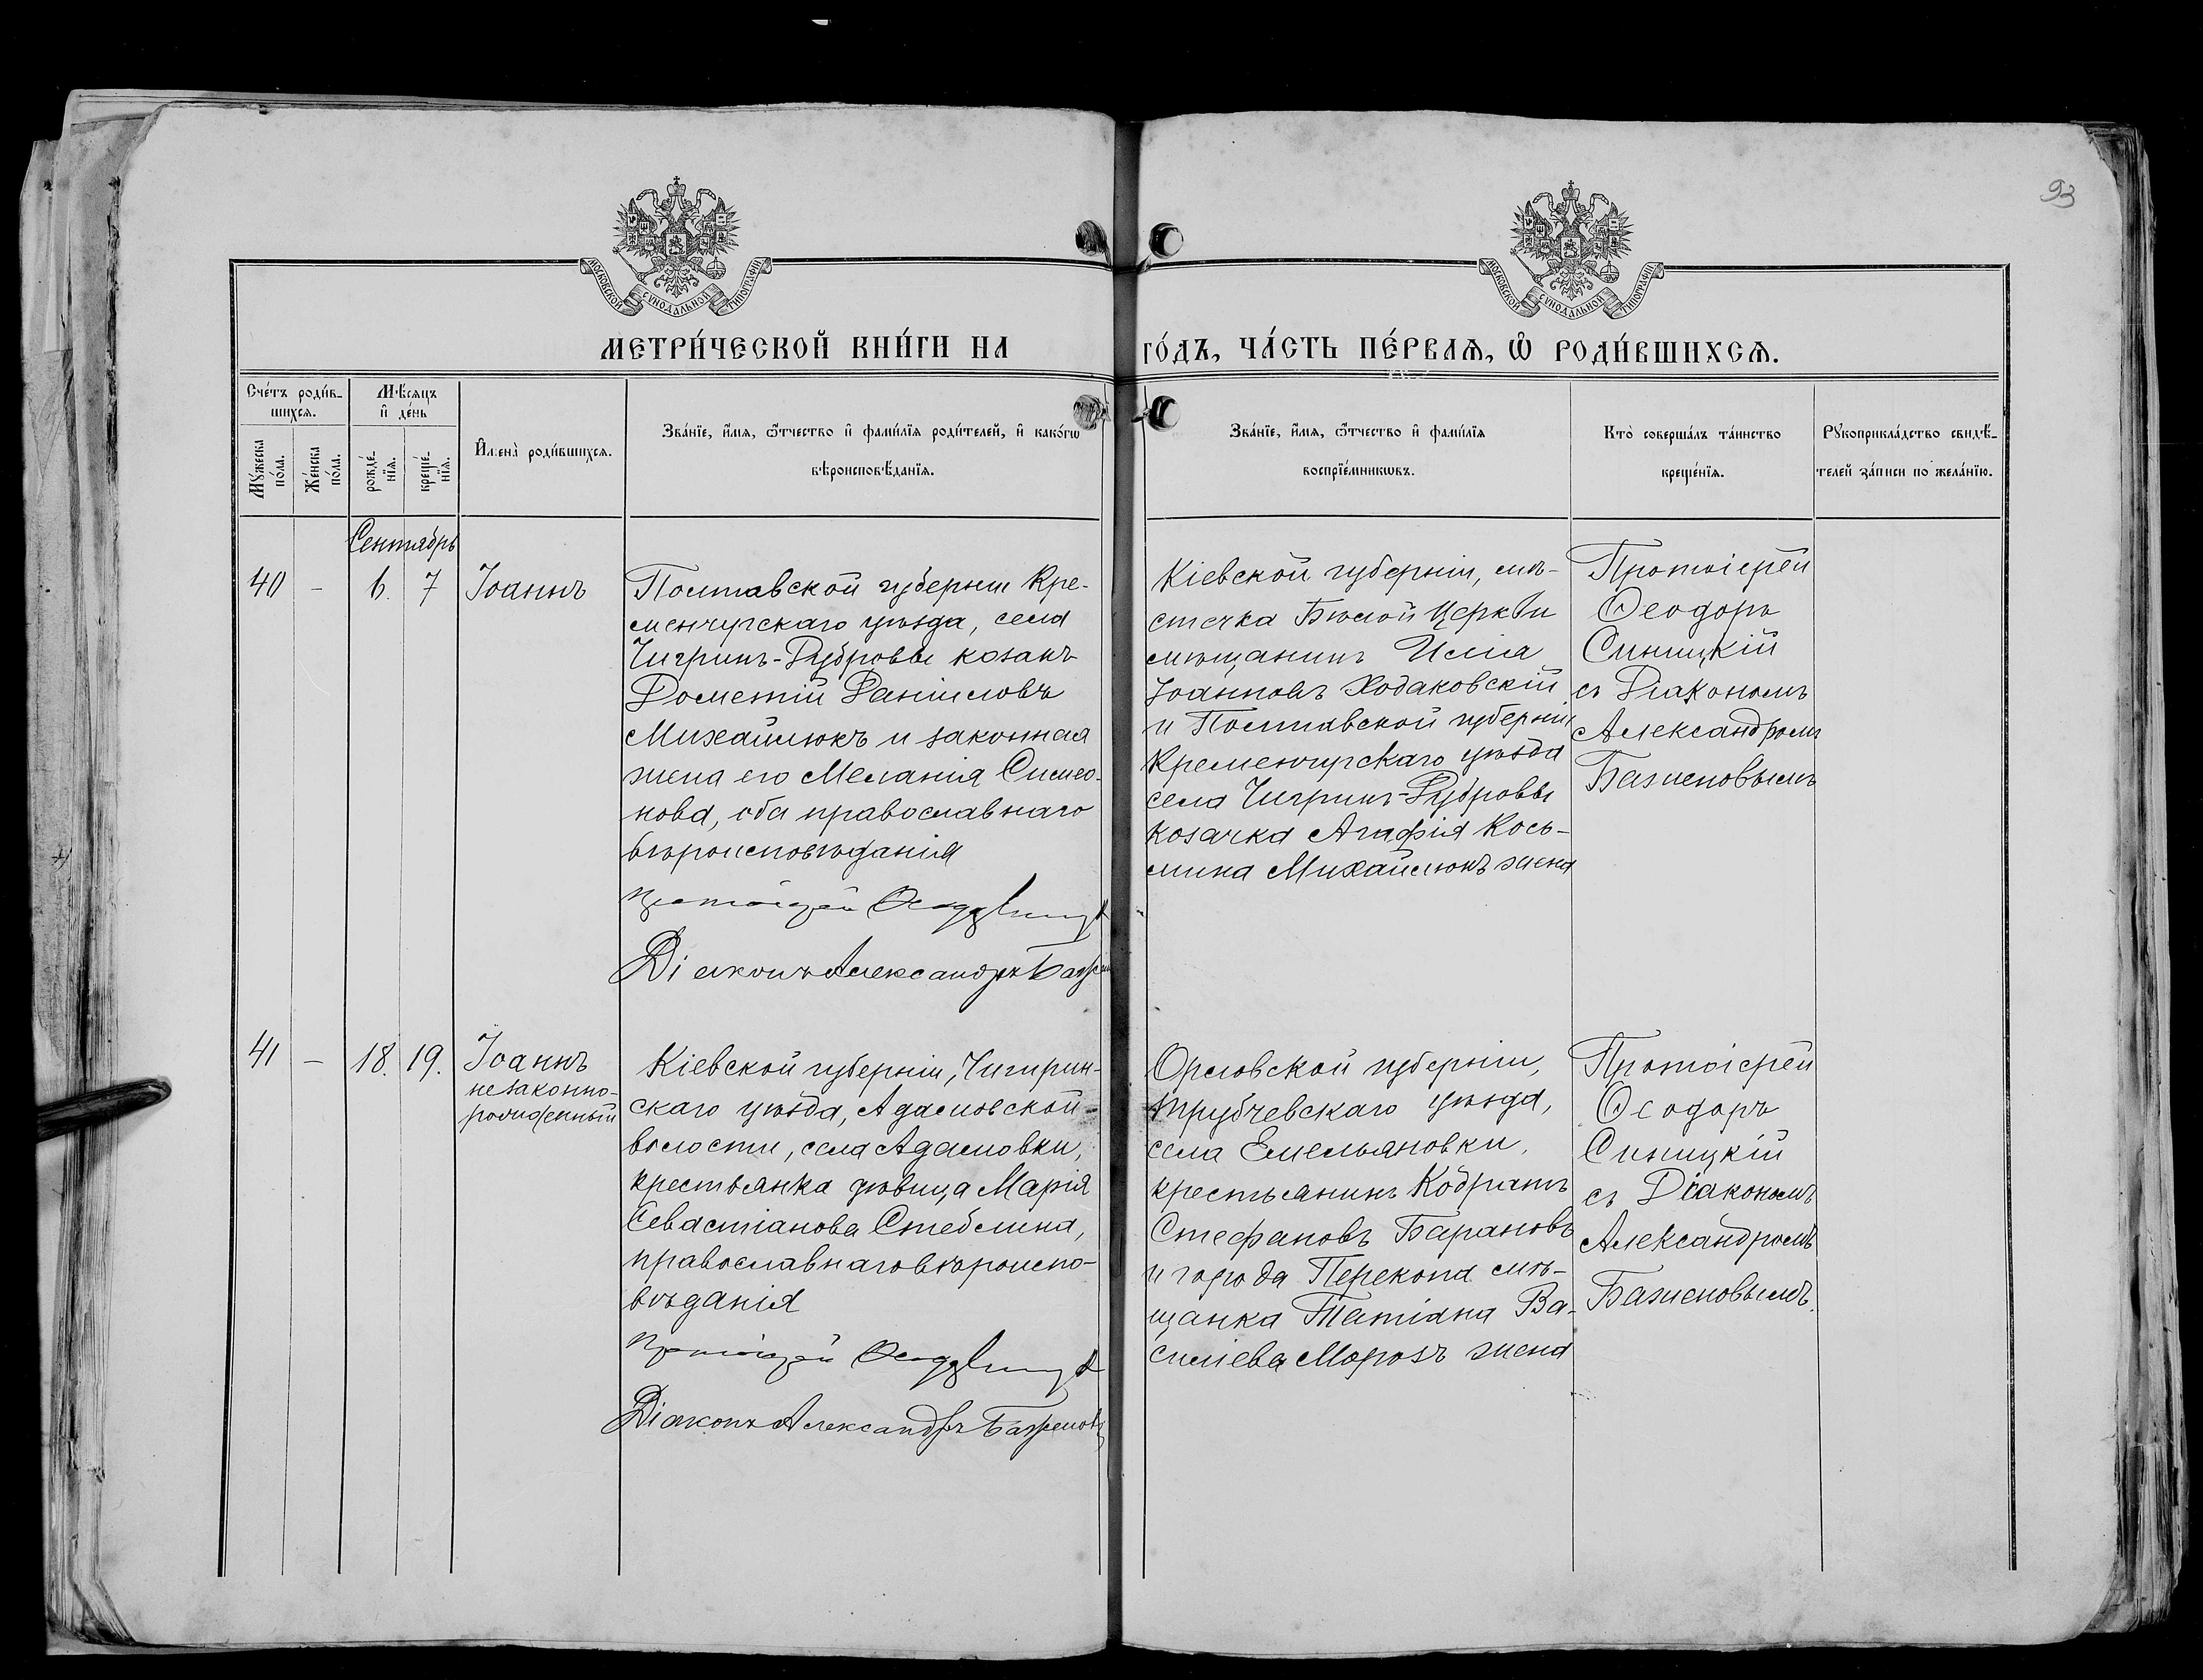 93
МОСКОВСКОЙ СУНОДАЛЬНОЙ ТИПОГРАФІИ
МОСКОВСКОЙ СУНОДАЛЬНОЙ ТИПОГРАФІИ
МЕТРИ́ЧЕСКОЙ КНИ́ГИ НА
ГО́ДЪ, ЧА́СТЬ ПЕ́РВАѦ, Ѡ҆ РОДИ́ВШИХСѦ.
Сче́тъ роди́в-
шихсѧ.
Мѣ́сѧцъ
и҆ де́нь
Мꙋ́жеска
по́ла.
Же́нска
по́ла.
рожде́-
нїѧ.
креще́-
нїѧ.
И҆мена̀ роди́вшихсѧ.
Зва́нїе, и҆́мѧ, ѻ҆́тчество и҆ фами́лїѧ роди́телей, и҆ како́гѡ
вѣроисповѣ́данїѧ.
Зва́нїе, и҆́мѧ, ѻ҆́тчество и҆ фами́лїѧ
воспрїе́мникѡвъ.
Кто̀ соверша́лъ та́инство
креще́нїѧ.
Рꙋкоприкла́дство свидѣ́-
телей за́писи по жела́нїю.
Сентябрь
40 – 6. 7 Іоаннъ
Полтавской губерніи Кре-
менчугскаго уѣзда, села
Чигринъ-Дубровы козакъ
Дометій Даніиловъ
Михайлюкъ и законная
жена его Меланія Симео-
нова, оба православнаго
вѣроисповѣданія
Протоіерей Ѳеодоръ Синицкій
Діаконъ Александръ Бажен
Кіевской губерніи, мѣ-
стечка Бѣлой Церкви
мѣщанинъ Илія
Іоанновъ Ходаковскій
и Полтавской губерніи
Кременчугскаго уѣзда
села Чигринъ-Дубровы
козачка Агафія Кось-
мина Михайлюкъ жена
Протоіерей
Ѳеодоръ
Синицкій
съ Діакономъ
Александромъ
Баженовымъ
41 – 18. 19. Іоаннъ
незаконно-
рожденный
Кіевской губерніи, Чигирин-
скаго уѣзда, Адамовской
волости, села Адамовки,
крестьянка дѣвица Марія
Севастіанова Стеблина,
православнаго вѣроиспо-
вѣданія
Протоіерей Ѳеодоръ Синицкій
Діаконъ Александръ Баженовъ
Орловской губерніи,
Трубчевскаго уѣзда,
села Емельяновки,
крестьянинъ Кодратъ
Стефановъ Барановъ
и города Перекопа мѣ-
щанка Татіана Ва-
силіева Морозъ жена
Протоіерей
Ѳеодоръ
Синицкій
съ Діакономъ
Александромъ
Баженовымъ.